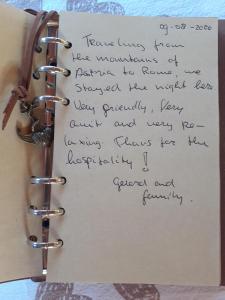 09-08-2020
Traveling from
the mountains of
Astria to Rome, we
stayed the night here
Very friendly, Very
quit and very Re-
laxing. Thanks for the
hospitality!
Gerard and
family.